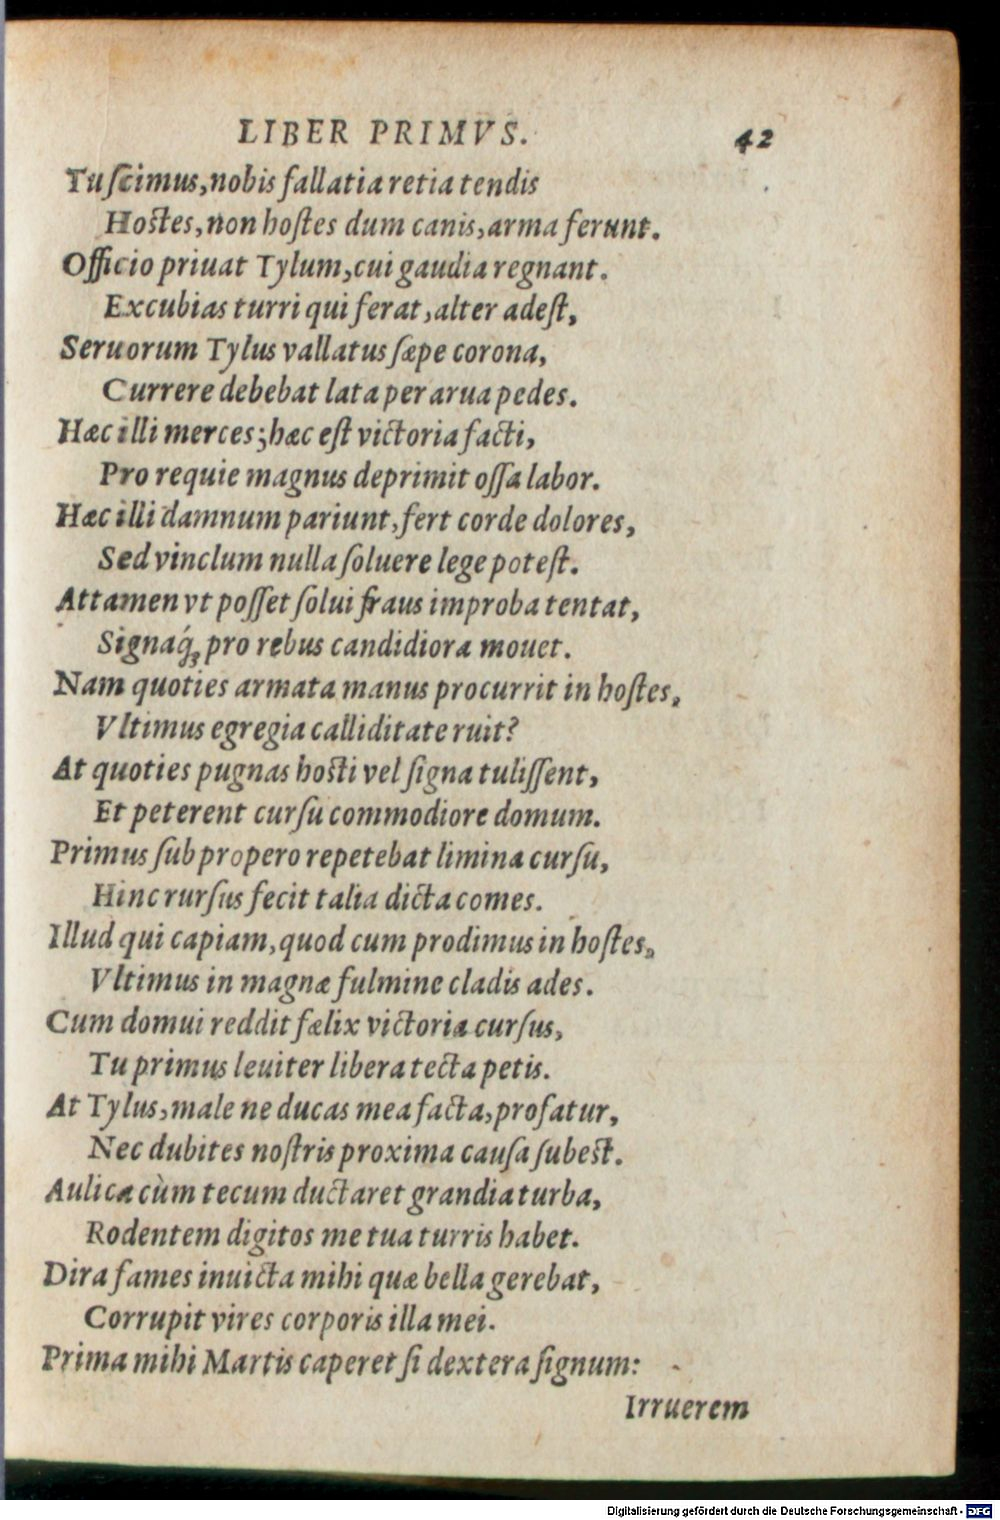 LIBER PRIMVS. 42
Tu ſcimus, nobis fallatia retia tendis
Hoſtes, non hoſtes dum canis, arma ferunt.
Officio priuat Tylum, cui gaudia regnant.
Excubias turri qui ferat, alter adeſt,
Seruorum Tylus vallatus ſæpe corona,
Currere debebat lata per arua pedes.
Hæc illi merces; hæc eſt victoria facti,
Pro requie magnus deprimit oſſa labor.
Hæc illi damnum pariunt, fert corde dolores,
Sed vinclum nulla ſoluere lege poteſt.
Attamen vt poſſet ſolui fraus improba tentat,
Signaq́ꝫ pro rebus candidiora mouet.
Nam quoties armata manus procurrit in hoſtes,
Vltimus egregia calliditate ruit?
At quoties pugnas hoſti vel ſigna tuliſſent,
Et peterent curſu commodiore domum.
Primus ſub propero repetebat limina curſu,
Hinc rurſus fecit talia dicta comes.
Illud qui capiam, quod cum prodimus in hoſtes,
Vltimus in magnæ fulmine cladis ades.
Cum domui reddit fælix victoria curſus,
Tu primus leuiter libera tecta petis.
At Tylus, male ne ducas mea facta, profatur,
Nec dubites noſtris proxima cauſa ſubeſt.
Aulica cùm tecum ductaret grandia turba,
Rodentem digitos me tua turris habet.
Dira fames inuicta mihi quæ bella gerebat,
Corrupit vires corporis illa mei.
Prima mihi Martis caperet ſi dextera ſignum:
Irruerem
Digitalisierung gefördert durch die Deutsche Forschungsgemeinschaft - DFG